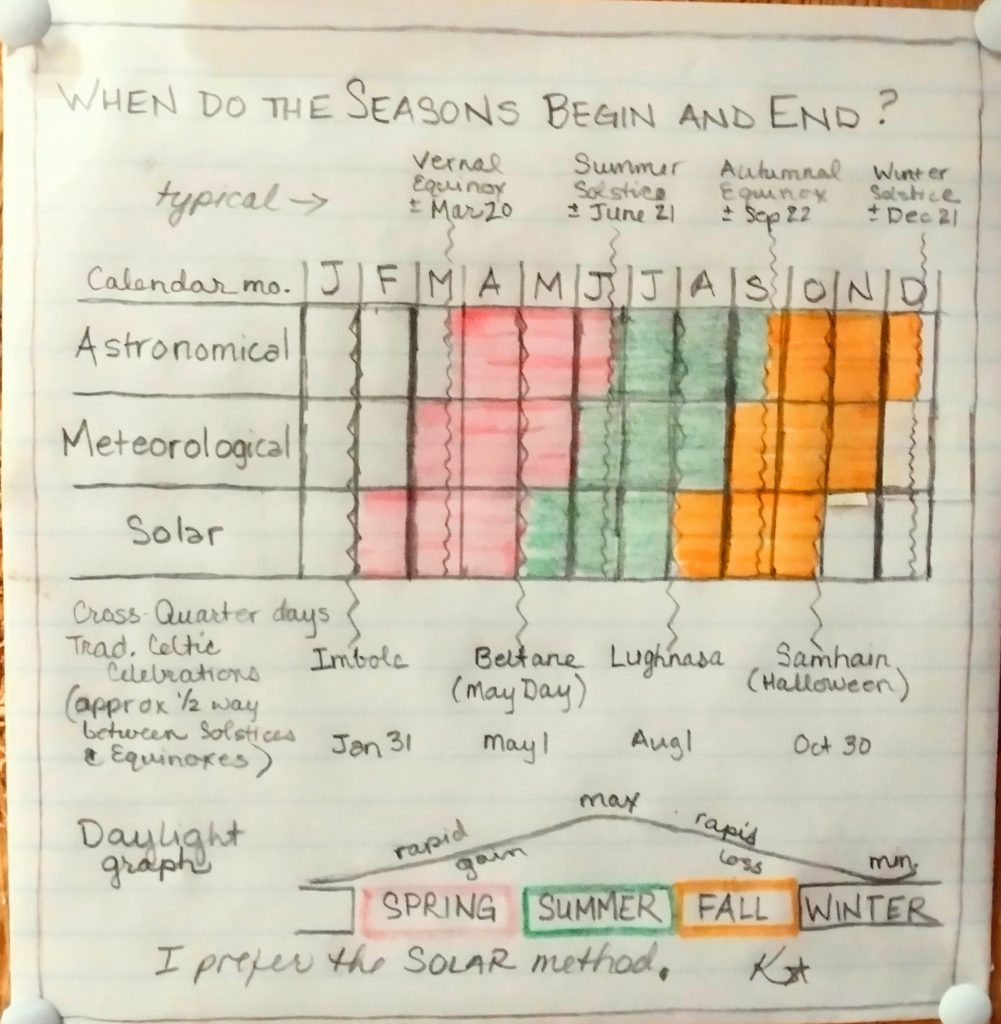 WHEN DO THE SEASONS BEGIN AND END?
typical →
Vernal
Equinox
± Mar 20
Summer
Solstice
± June 21
Autumnal
Equinox
± Sep 22
Winter
Solstice
± Dec 21
Calendar mo. J F M A M J J A S O N D
Astronomical
Meteorological
Solar
Cross-Quarter days
Trad. Celtic
Celebrations
(approx 1/2 way
between Solstices
& Equinoxes)
Imbolc
Jan 31
Beltane
(May Day)
May 1
Lughnasa
Aug 1
Samhain
(Halloween)
Oct 30
Daylight
graph
rapid
gain
max
rapid
loss
min.
SPRING SUMMER FALL WINTER
I prefer the SOLAR method. K☆